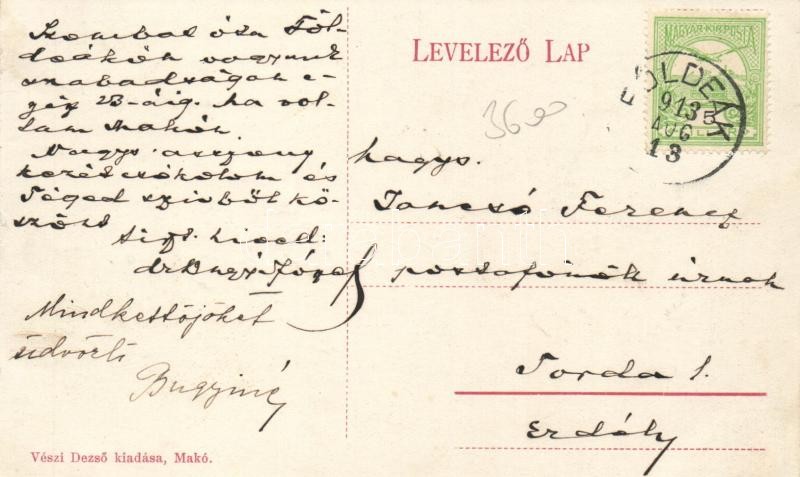 Szombat óta Föl-
deákón vagyunk
szabadságon e-
gész 23-áig. ha vol-
tam Makón.
Nagys. asszony
kezét csókolom és
Téged szivből kö-
szönt
tiszt. hived:
dr Bugyi József
Mindkettőjöket
üdvözli
Bugyiné
LEVELEZŐ LAP
MAGYAR KIR. POSTA
FÖLDEÁK
913
AUG
13
3600
Nagys.
Jancsó Ferencz
postafőnök úrnak
Torda 1.
Erdély
Vészi Dezső kiadása, Makó.